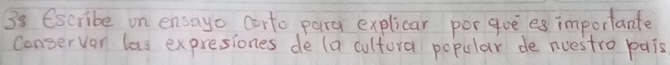 3s Escribe un ensayo corto para explicar por qué es importante
Conservar las expresiones de la cultura popular de nuestro país